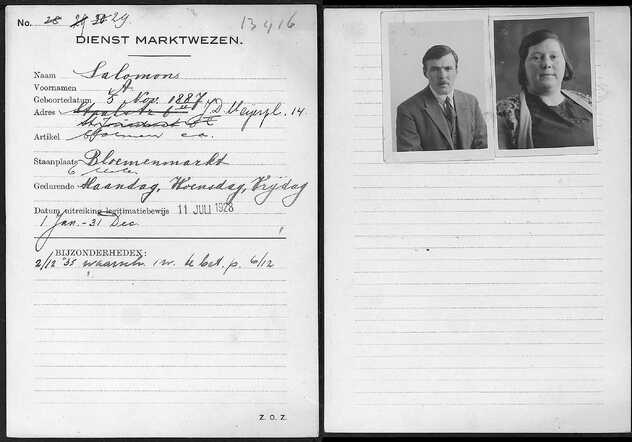 No. 28 29 30 29 13416
DIENST MARKTWEZEN.
Naam Salomons
Voornamen A
Geboortedatum 5 Nov. 1887
Adres 14
Artikel Bloemen ca.
Staanplaats Bloemenmarkt
6
Gedurende Maandag, Woensdag, Vrijdag
Datum uitreiking legitimatiebewijs 11 JULI 1928
1 Jan. - 31 Dec.
BIJZONDERHEDEN:
2/12 '35 waarsch. i.v. te bet. p. 6/12
Z. O. Z.